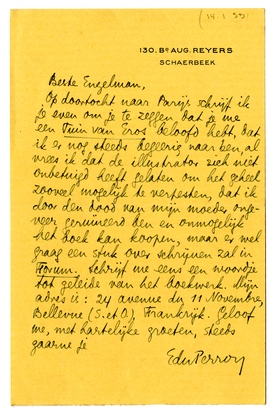 (14.1.33)
130. Bd AUG. REYERS
SCHAERBEEK
Beste Engelman,
Op doortocht naar Parijs schrijf ik
je even om je te zeggen, dat je me
een "Tuin van Eros" beloofd hebt, dat
ik er nog steeds begeerig naar ben, al
vrees ik dat de illustrator zich niet
onbetuigd heeft gelaten om het geheel
zooveel mogelijk te verpesten, dat ik
door den dood van mijn moeder onge-
veer geruïneerd ben en onmogelijk
het boek kan koopen, maar er wel
graag een stuk over schrijven zal in
Forum. Schrijf me eens een woordje
tot geleide van het boekwerk. Mijn
adres is: 24 avenue du 11 Novembre,
Bellevue (S. et O.) Frankrijk. Geloof
me, met hartelijke groeten, steeds
gaarne je
EduPerron